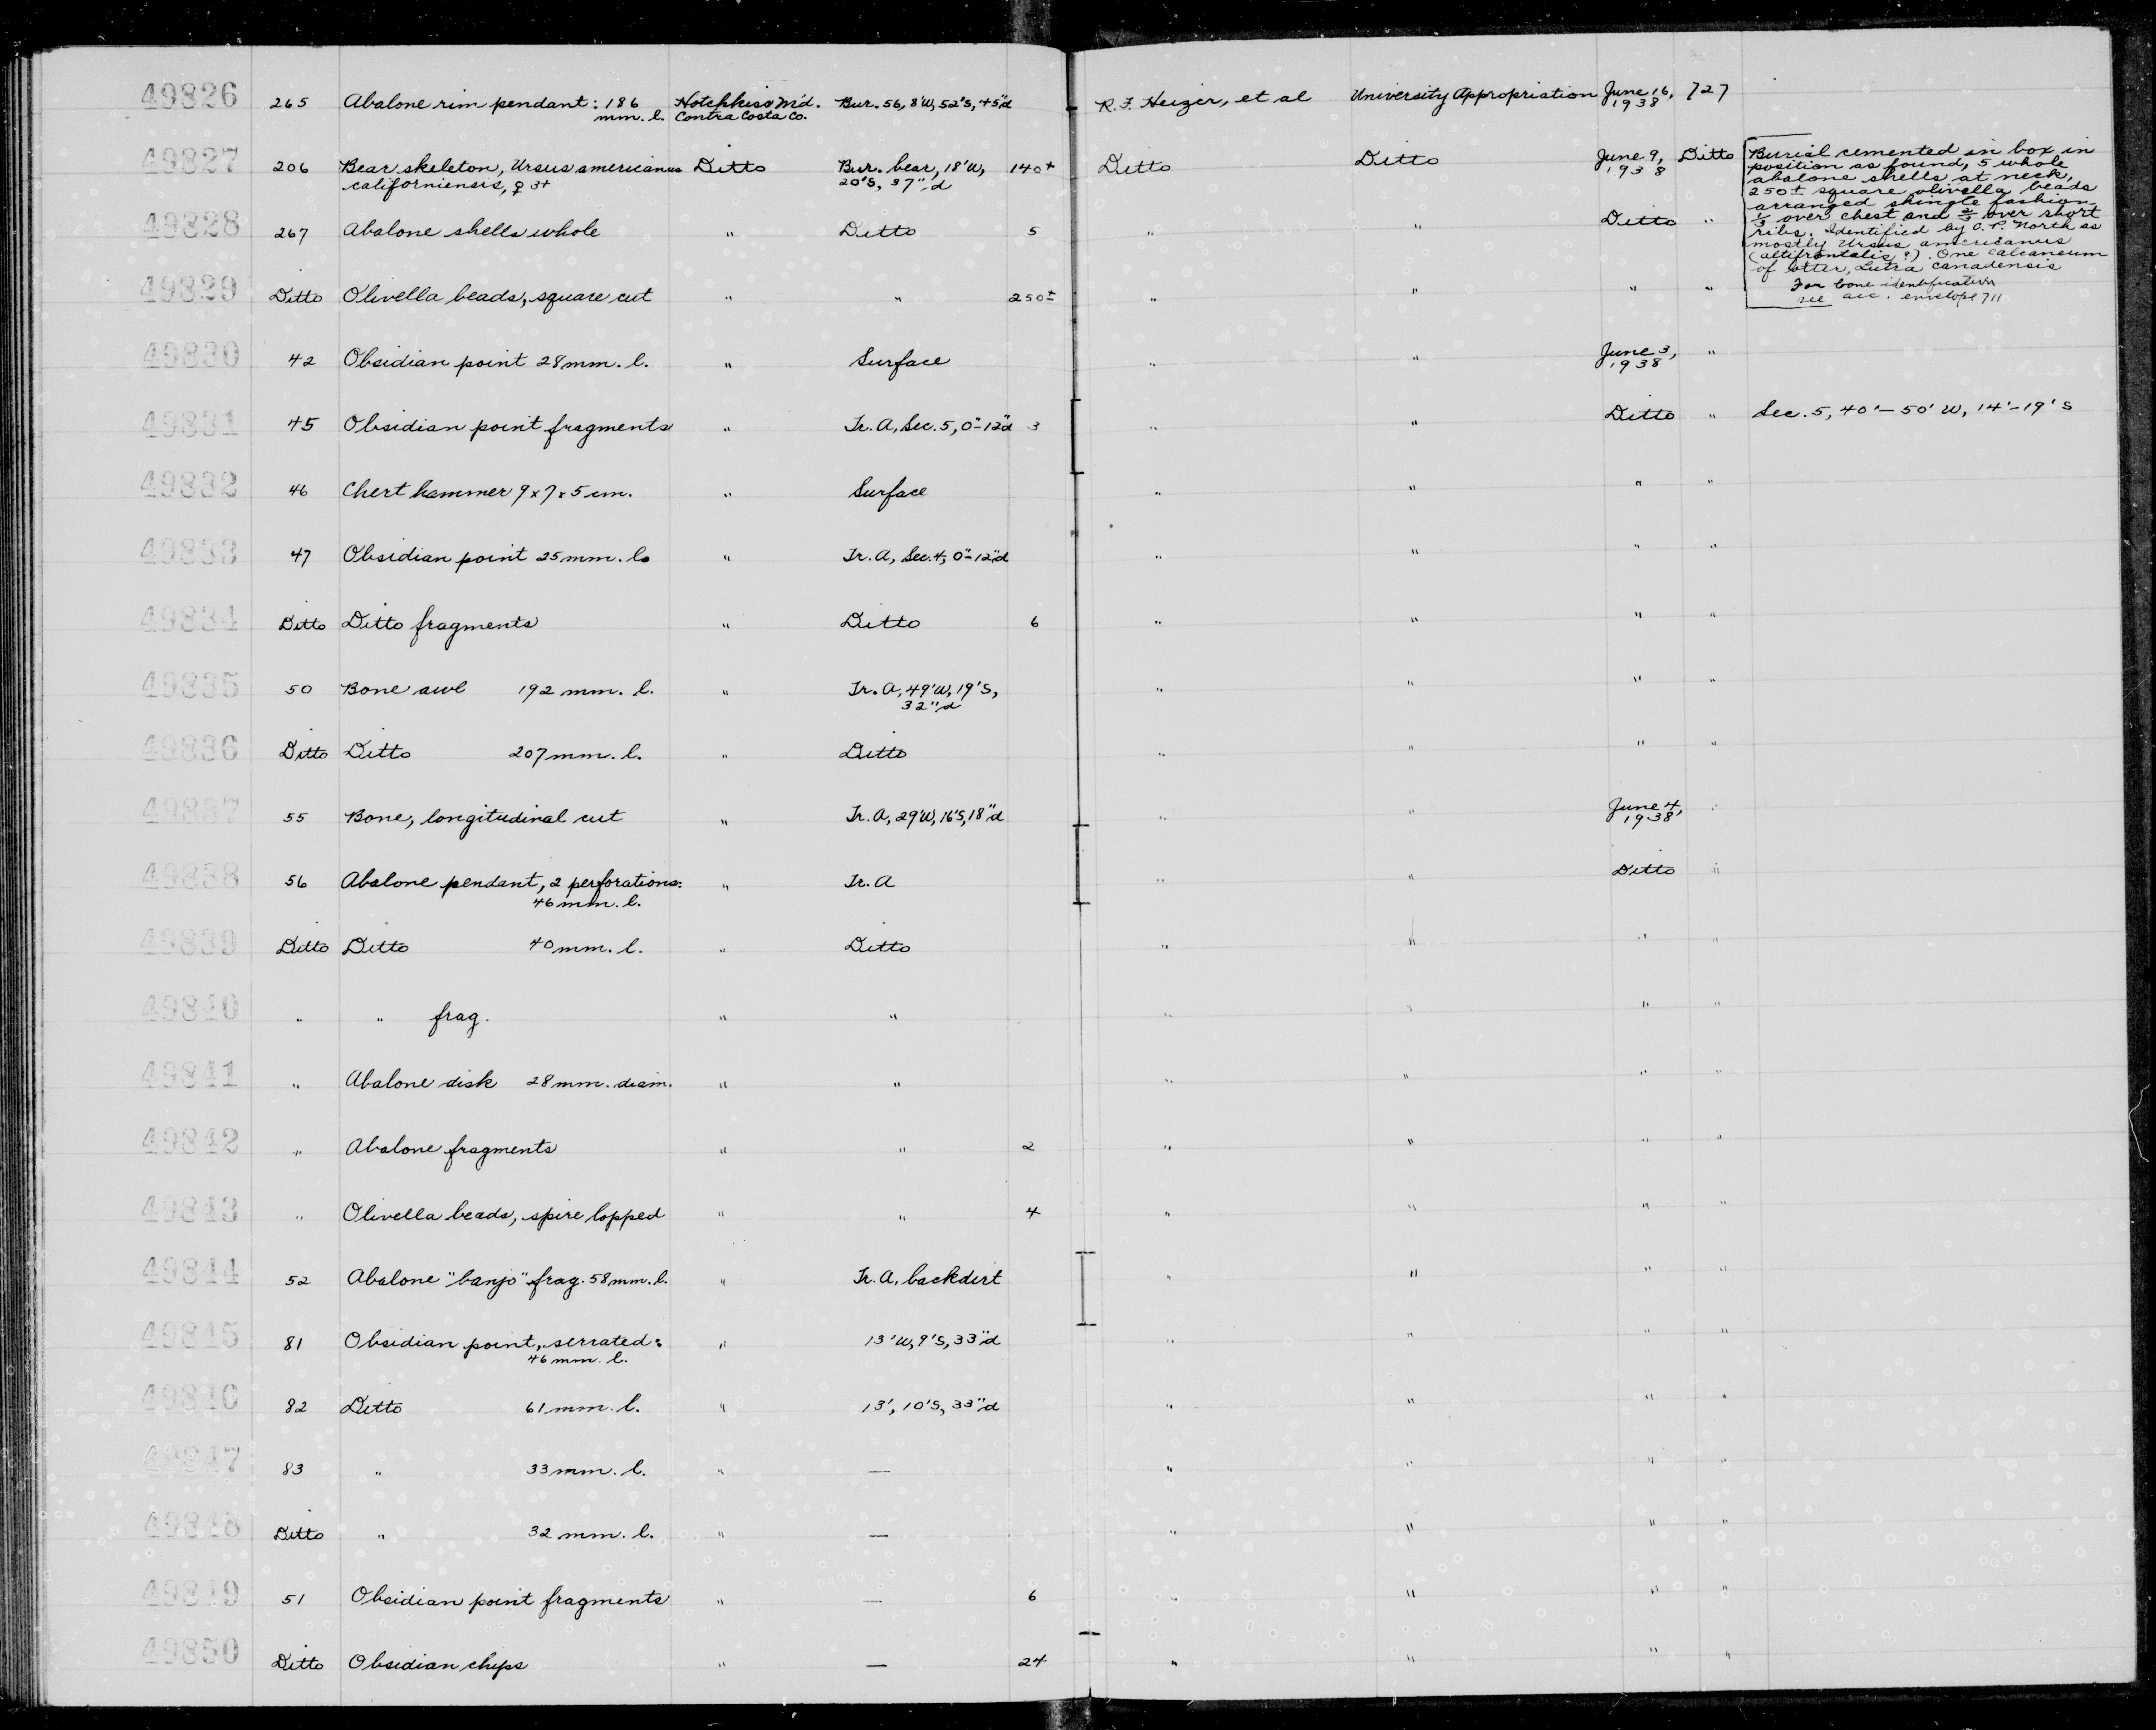 49826 265 Abalone rim pendant: 186 Hotchkiss M'd. Bur. 56, 8'W, 52'S, 45"d R. F. Heizer, et al University Appropriation June 16, 727
mm. l. Contra Costa Co. 1938
49827 206 Bear skeleton, Ursus americanus Ditto Bur. bear, 18'W, 140+ Ditto Ditto June 9, Ditto
californiensis, ♀ 3+ 20'S, 37"d 1938
Burial cemented in box in
position as found, 5 whole
abalone shells at neck,
250± square olivella beads
arranged shingle fashion
1/3 over chest and 2/3 over short
ribs. Identified by O. P. North as
mostly Ursus americanus
(altifrontalis?). One calcaneum
of otter, Lutra canadensis
For bone identification
see acc. envelope 711
49828 267 Abalone shells whole " Ditto 5 " " Ditto "
49829 Ditto Olivella beads, square cut " " 250± " " " "
49830 42 Obsidian point 28mm. l. " Surface " " June 3, "
1938
49831 45 Obsidian point fragments " Tr. A, Sec. 5, 0"-12"d 3 " " Ditto " Sec. 5, 40'-50' W, 14'-19' S
49832 46 Chert hammer 9x7x5 cm. " Surface " " " "
49833 47 Obsidian point 25mm. l. " Tr. A, Sec. 4, 0"-12"d " " " "
49834 Ditto Ditto fragments " Ditto 6 " " " "
49835 50 Bone awl 192 mm. l. " Tr. A, 49'W, 19'S, " " " "
32"d
49836 Ditto Ditto 207mm. l. " Ditto " " " "
49837 55 Bone, longitudinal cut " Tr. A, 29'W, 16'S, 18"d " " June 4, "
1938
49838 56 Abalone pendant, 2 perforations: " Tr. A " " Ditto "
46mm. l.
49839 Ditto Ditto 40mm. l. " Ditto " " " "
49840 " " frag. " " " " " "
49841 " Abalone disk 28mm. diam. " " " " " "
49842 " Abalone fragments " " 2 " " " "
49843 " Olivella beads, spire lopped " " 4 " " " "
49844 52 Abalone "banjo" frag. 58mm. l. " Tr. A, backdirt " " " "
49845 81 Obsidian point, serrated: " 13'W, 9'S, 33"d " " " "
46mm. l.
49846 82 Ditto 61mm. l. " 13', 10'S, 33"d " " " "
49847 83 " 33mm. l. " — " " " "
49848 Ditto " 32 mm. l. " — " " " "
49849 51 Obsidian point fragments " — 6 " " " "
49850 Ditto Obsidian chips " — 24 " " " "